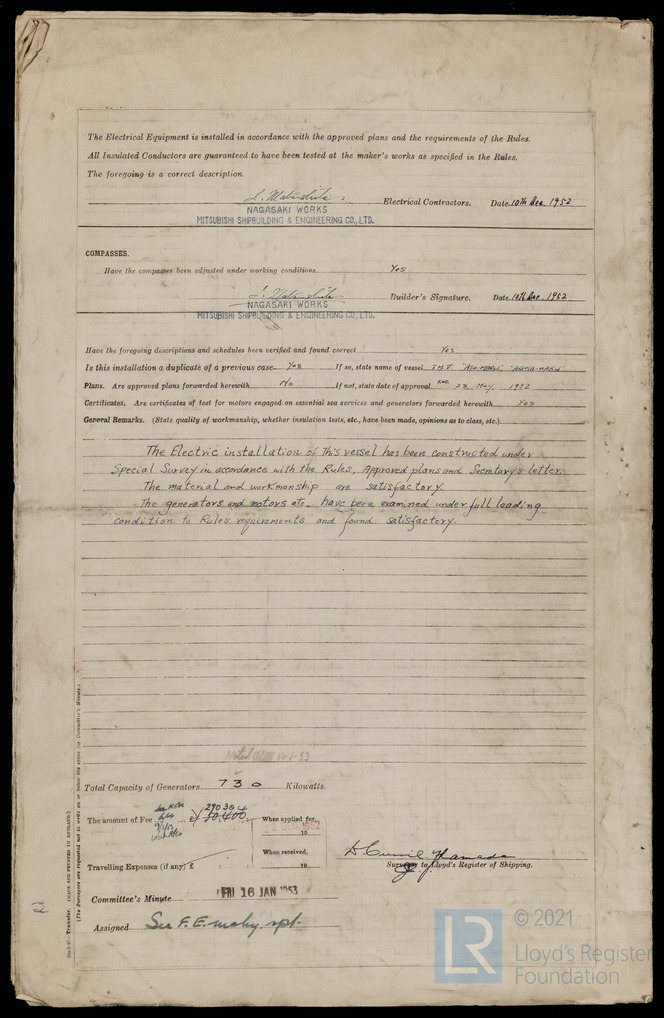 The Electrical Equipment is installed in accordance with the approved plans and the requirements of the Rules.
All Insulated Conductors are guaranteed to have been tested at the maker's works as specified in the Rules.
The foregoing is a correct description.
Electrical Contractors. Date 10th Dec. 1952
NAGASAKI WORKS
MITSUBISHI SHIPBUILDING & ENGINEERING CO., LTD.
COMPASSES.
Have the compasses been adjusted under working conditions Yes
Builder's Signature. Date 10th Dec. 1952
NAGASAKI WORKS
MITSUBISHI SHIPBUILDING & ENGINEERING CO., LTD.
Have the foregoing descriptions and schedules been verified and found correct Yes
Is this installation a duplicate of a previous case Yes If so, state name of vessel
Plans. Are approved plans forwarded herewith No If not, state date of approval 28, May, 1952
Certificates. Are certificates of test for motors engaged on essential sea services and generators forwarded herewith Yes
General Remarks. (State quality of workmanship, whether insulation tests, etc., have been made, opinions as to class, etc.)
The Electric installation of this vessel has been constructed under
Special Survey in accordance with the Rules, Approved plans and Secretary's letter.
The material and workmanship are satisfactory.
The generators and motors etc. have been examined under full loading
condition to Rules requirements and found satisfactory.
Noted 14-1-53
Total Capacity of Generators 730 Kilowatts.
290304
The amount of Fee ... £ 30.400. When applied for,
1952
19
When received,
Travelling Expenses (if any) £ : : 19
Surveyor to Lloyd's Register of Shipping.
Committee's Minute FRI 16 JAN 1953
Assigned See F.E. mchy. rpt.
Transfer. (MADE AND PRINTED IN ENGLAND.)
(The Surveyors are requested not to write on or below the space for Committee's Minute.)
LR
© 2021
Lloyd's Register
Foundation